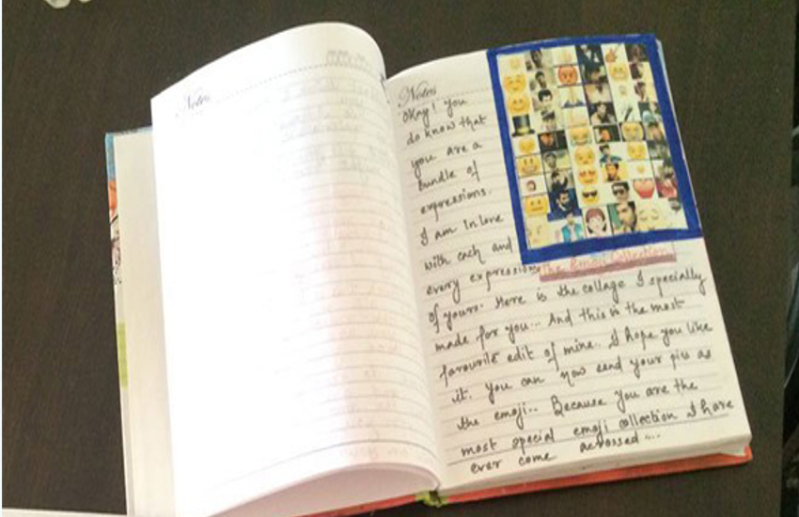 Notes
Notes
Okay! You
do know that
you are a
bundle of
expressions.
I am in love
with each and
every expression
The Emoji Collection
of yours. Here is the collage I specially
made for you... And this is the most
favourite edit of mine.. I hope you like
it. You can now send your pics as
the emoji.. Because you are the
most special emoji collection I have
ever come acrossed....